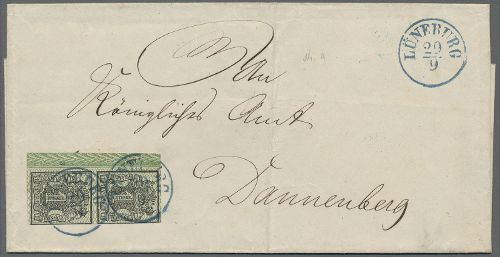 LÜNEBURG
29
9
An
Königliches Amt
Dannenberg